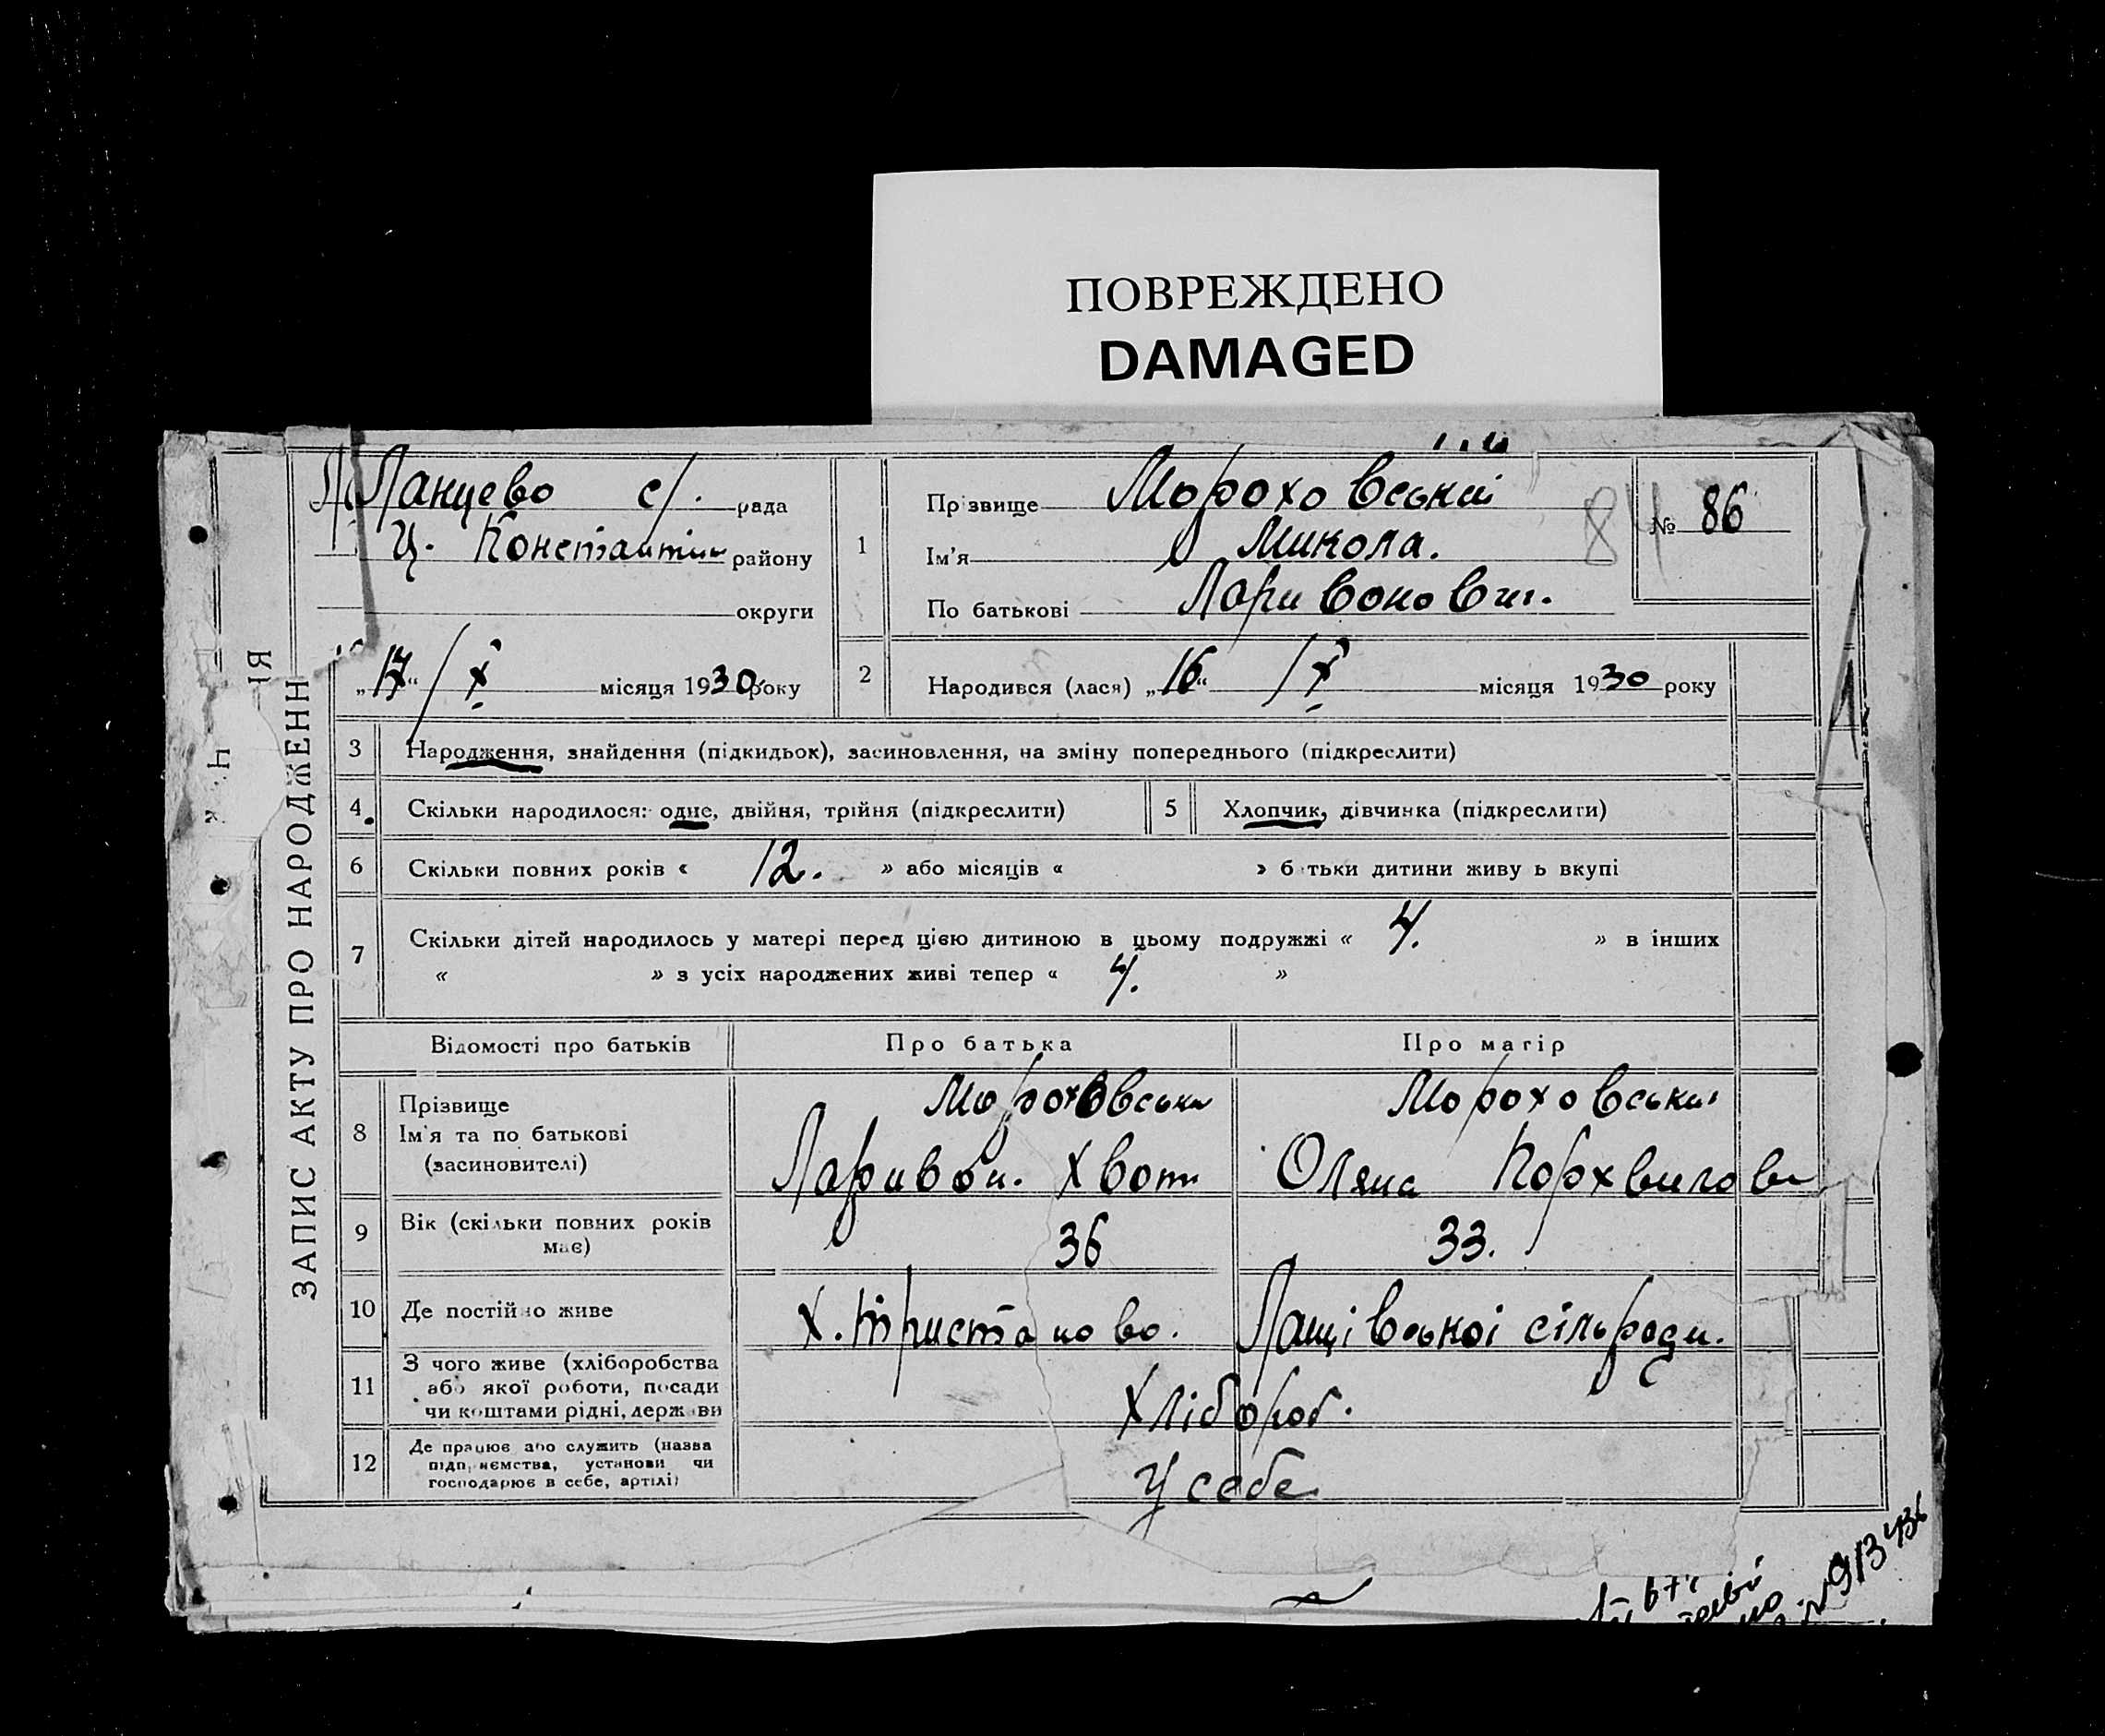 ПОВРЕЖДЕНО
DAMAGED
ЗАПИС АКТУ ПРО НАРОДЖЕНН
ІЯ
Ланцево с/. рада
Ц. Константин району
округи
„17“ / X місяця 1930 року
1
Прізвище Мороховський
Ім'я Микола.
По батькові Ларивонович.
84
№ 86
2
Народився (лася) „16“ / X місяця 1930 року
3 Народження, знайдення (підкидьок), засиновлення, на зміну попереднього (підкреслити)
4. Скільки народилося: одне, двійня, трійня (підкреслити) 5 Хлопчик, дівчинка (підкреслити)
6 Скільки повних років « 12. » або місяців « » б тьки дитини живу ь вкупі
7 Скільки дітей народилось у матері перед цією дитиною в цьому подружжі « 4. » в інших
« » з усіх народжених живі тепер « 4. »
Відомості про батьків Про батька Про матір
8 Прізвище
Ім'я та по батькові
(засиновителі)
Мороховськи
Ларивон. Хвот
Мороховськи
Оляна Порхвилов
9 Вік (скільки повних років
має)
36 33.
10 Де постійно живе Х. Тристаново. Лащівської сільради.
11 З чого живе (хліборобства
або якої роботи, посади
чи коштами рідні, держави
Хлібороб.
12 Де працює або служить (назва
підприємства, установи чи
господарює в себе, артілі)
У себе